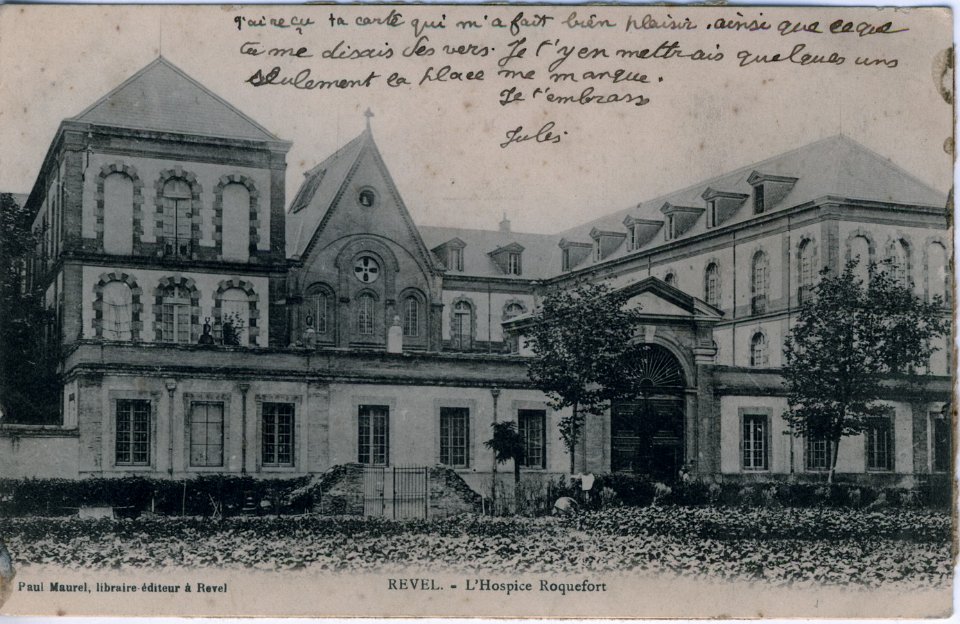 J'ai reçu ta carte qui m'a fait bien plaisir. ainsi que ce que
tu me disais des vers. Je t'y en mettrais quelques uns
seulement la place me manque.
Je t'embrass
Jules
Paul Maurel, libraire-éditeur à Revel
REVEL. - L'Hospice Roquefort